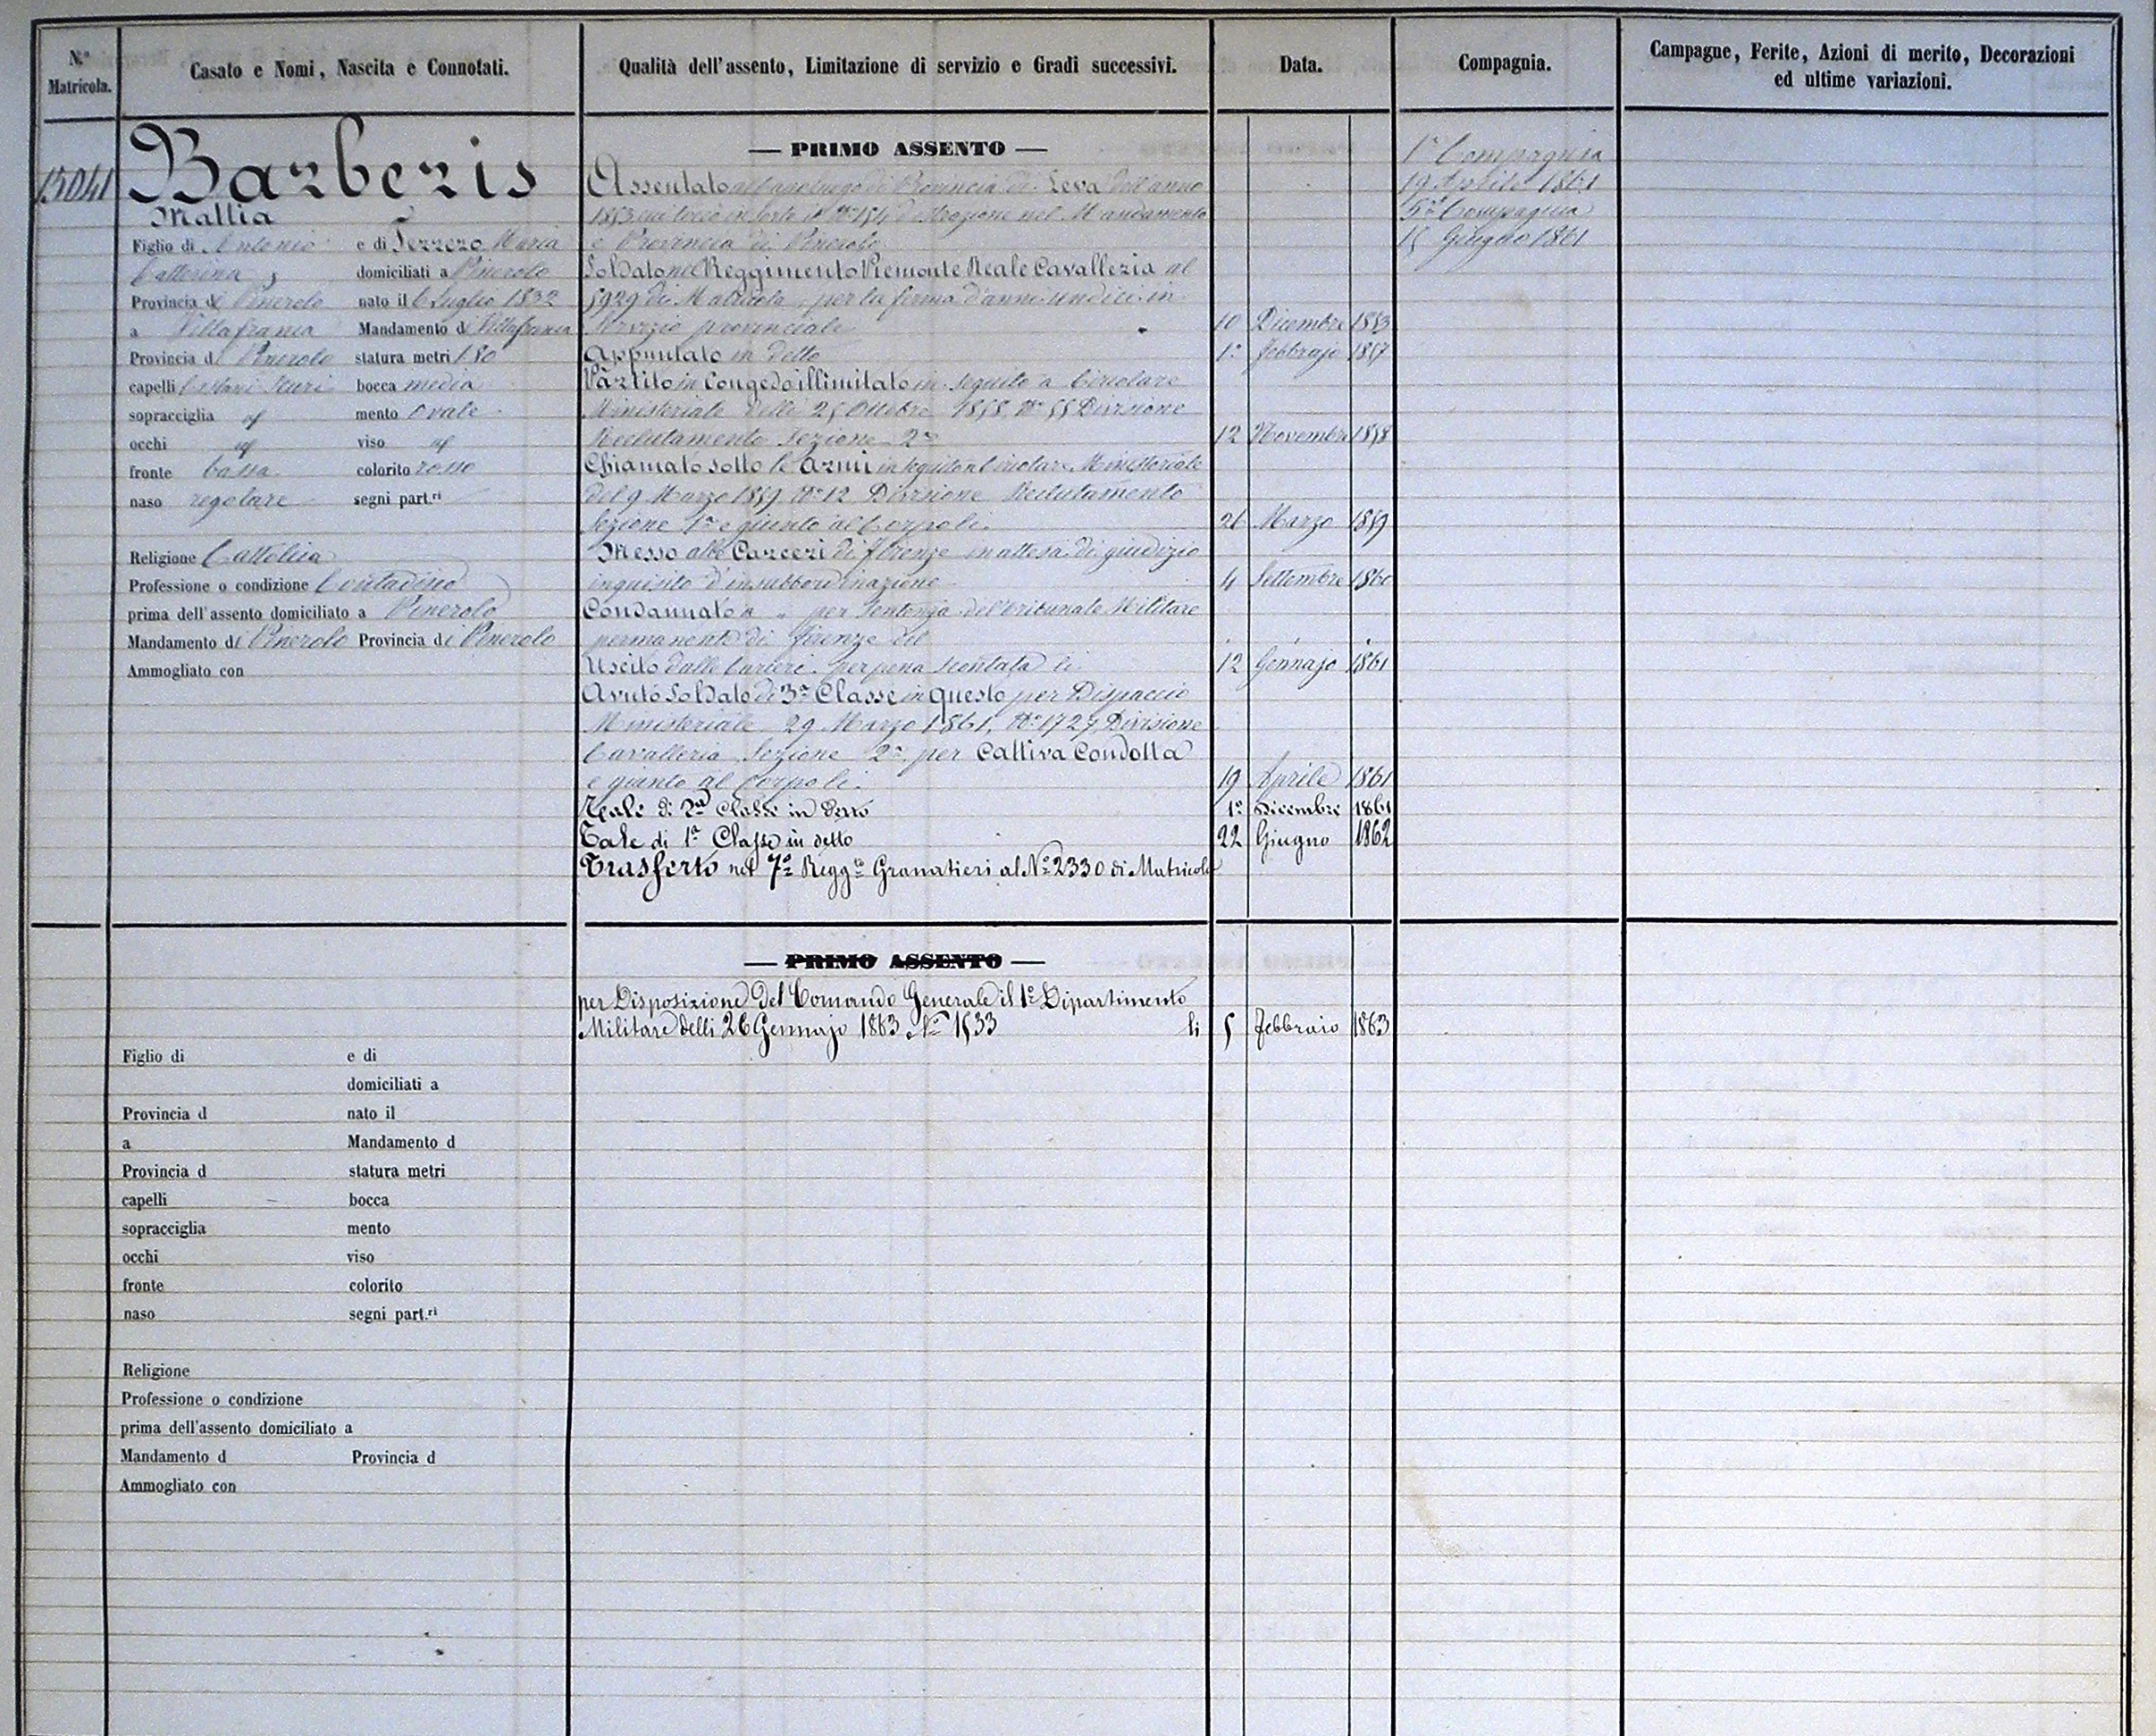 N.° Matricola.
Casato e Nomi, Nascita e Connotati.
Qualità dell'assento, Limitazione di servizio e Gradi successivi.
Data.
Compagnia.
Campagne, Ferite, Azioni di merito, Decorazioni
ed ultime variazioni.
15041
Barberis
Mattia
Figlio di Antonio e di Ferrero Maria
Catterina domiciliati a Pinerolo
Provincia di Pinerolo nato il 6 Luglio 1832
a Villafranca Mandamento di Villafranca
Provincia di Pinerolo statura metri 1.80
capelli Castani Scuri bocca media
sopracciglia id mento ovale
occhi id viso id
fronte bassa colorito rosso
naso regolare segni part.ri
Religione Cattolica
Professione o condizione Contadino
prima dell'assento domiciliato a Pinerolo
Mandamento di Pinerolo Provincia di Pinerolo
Ammogliato con
— PRIMO ASSENTO —
Assentato al Capoluogo di Provincia di Leva dell'anno
1853 cui toccò in sorte il N.° d'estrazione nel Mandamento
e Provincia di Pinerolo
Soldato nel Reggimento Piemonte Reale Cavallezia al
5929 di Matricola, per la ferma d'anni undici in
Servizio provinciale 10 Dicembre 1853
Appuntato in detto 1° Febbrajo 1857
Partito in Congedo illimitato in seguito a Circolare
Ministeriale delli 25 Ottobre 1858, N° 55 Divisione
Reclutamento Sezione 2a 12 Novembre 1858
Chiamato sotto le Armi in seguito a Circolare Ministeriale
del 9 Marzo 1859, N° 12 Divisione Reclutamento
Sezione 1a e giunto al Corpo li 26 Marzo 1859
Messo alle Carceri di Firenze in attesa di giudizio
inquisito d'insubbordinazione 4 Settembre 1860
Condannato a " per Sentenza del Tribunale Militare
permanente di Firenze del
Uscito dalle Carceri per pena scontata li 12 Gennajo 1861
Avuto Soldato di 3a Classe in questo per Dispaccio
Ministeriale 29 Marzo 1861, N° 1727, Divisione
Cavalleria Sezione 2a per Cattiva Condotta
e giunto al Corpo li 19 Aprile 1861
Tale di 2a Classe in detto 1° Dicembre 1861
Tale di 1a Classe in detto 22 Giugno 1862
Trasferto nel 7° Regg.to Granatieri al N° 2330 di Matricola
1a Compagnia
19 Aprile 1861
5a Compagnia
15 Giugno 1861
— PRIMO ASSENTO —
per Disposizione del Comando Generale il 1° Dipartimento
Militare delli 26 Gennajo 1863 N° 1533 li 5 Febbraio 1863
Figlio di e di
domiciliati a
Provincia d nato il
a Mandamento d
Provincia d statura metri
capelli bocca
sopracciglia mento
occhi viso
fronte colorito
naso segni part.ri
Religione
Professione o condizione
prima dell'assento domiciliato a
Mandamento d Provincia d
Ammogliato con